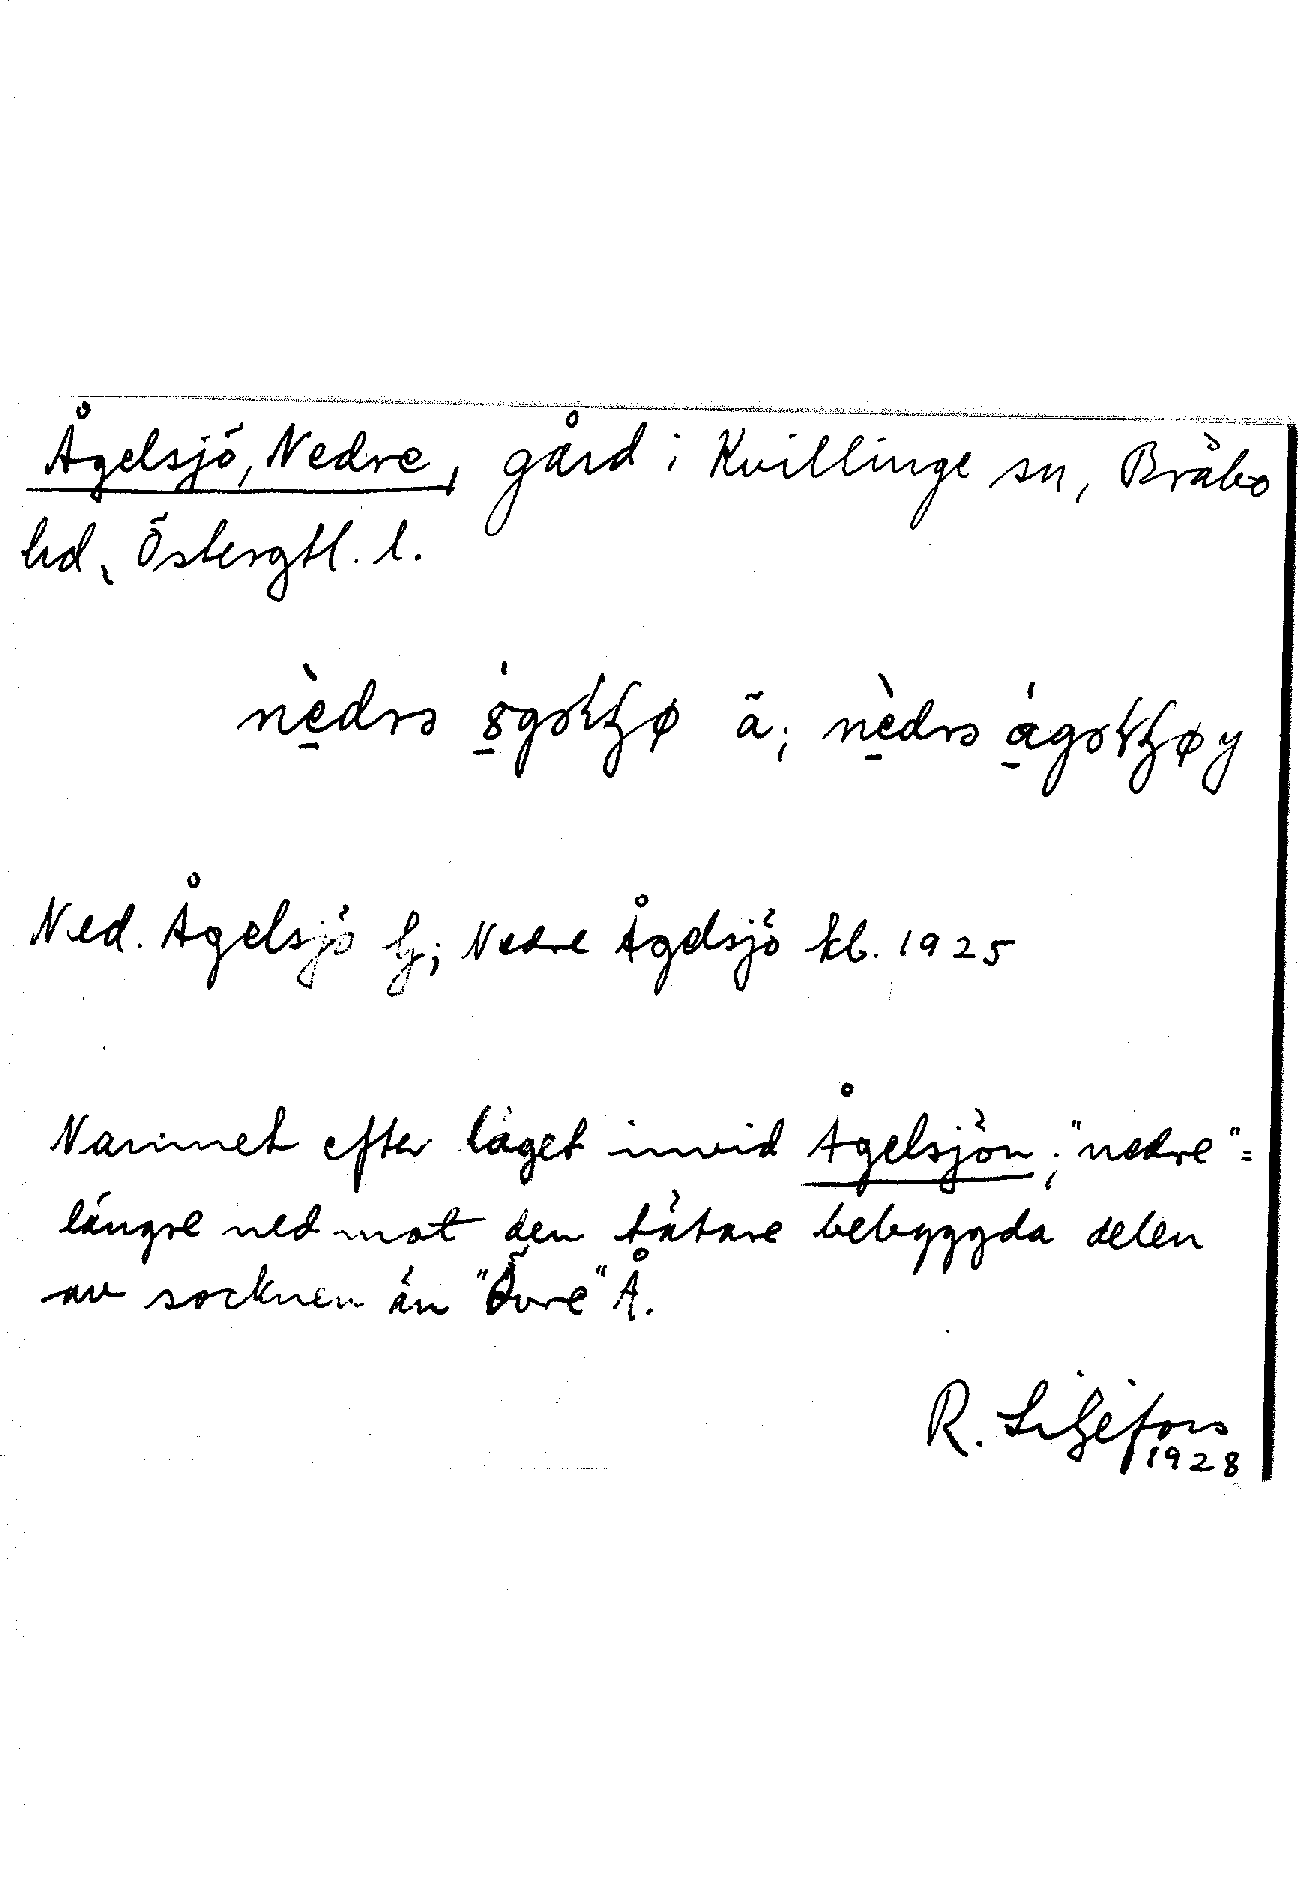 Ågelsjö, Nedre, gård i Kvillinge sn, Bråbo
hd, Östergtl. l.
ã;
Ned. Ågelsjö Gj; Nedre Ågelsjö kb. 1925
Namnet efter läget invid Ågelsjön; "nedre" =
längre ned mot den tätare bebyggda delen
av socknen än "Övre" Å.
R. Liljefors
1928